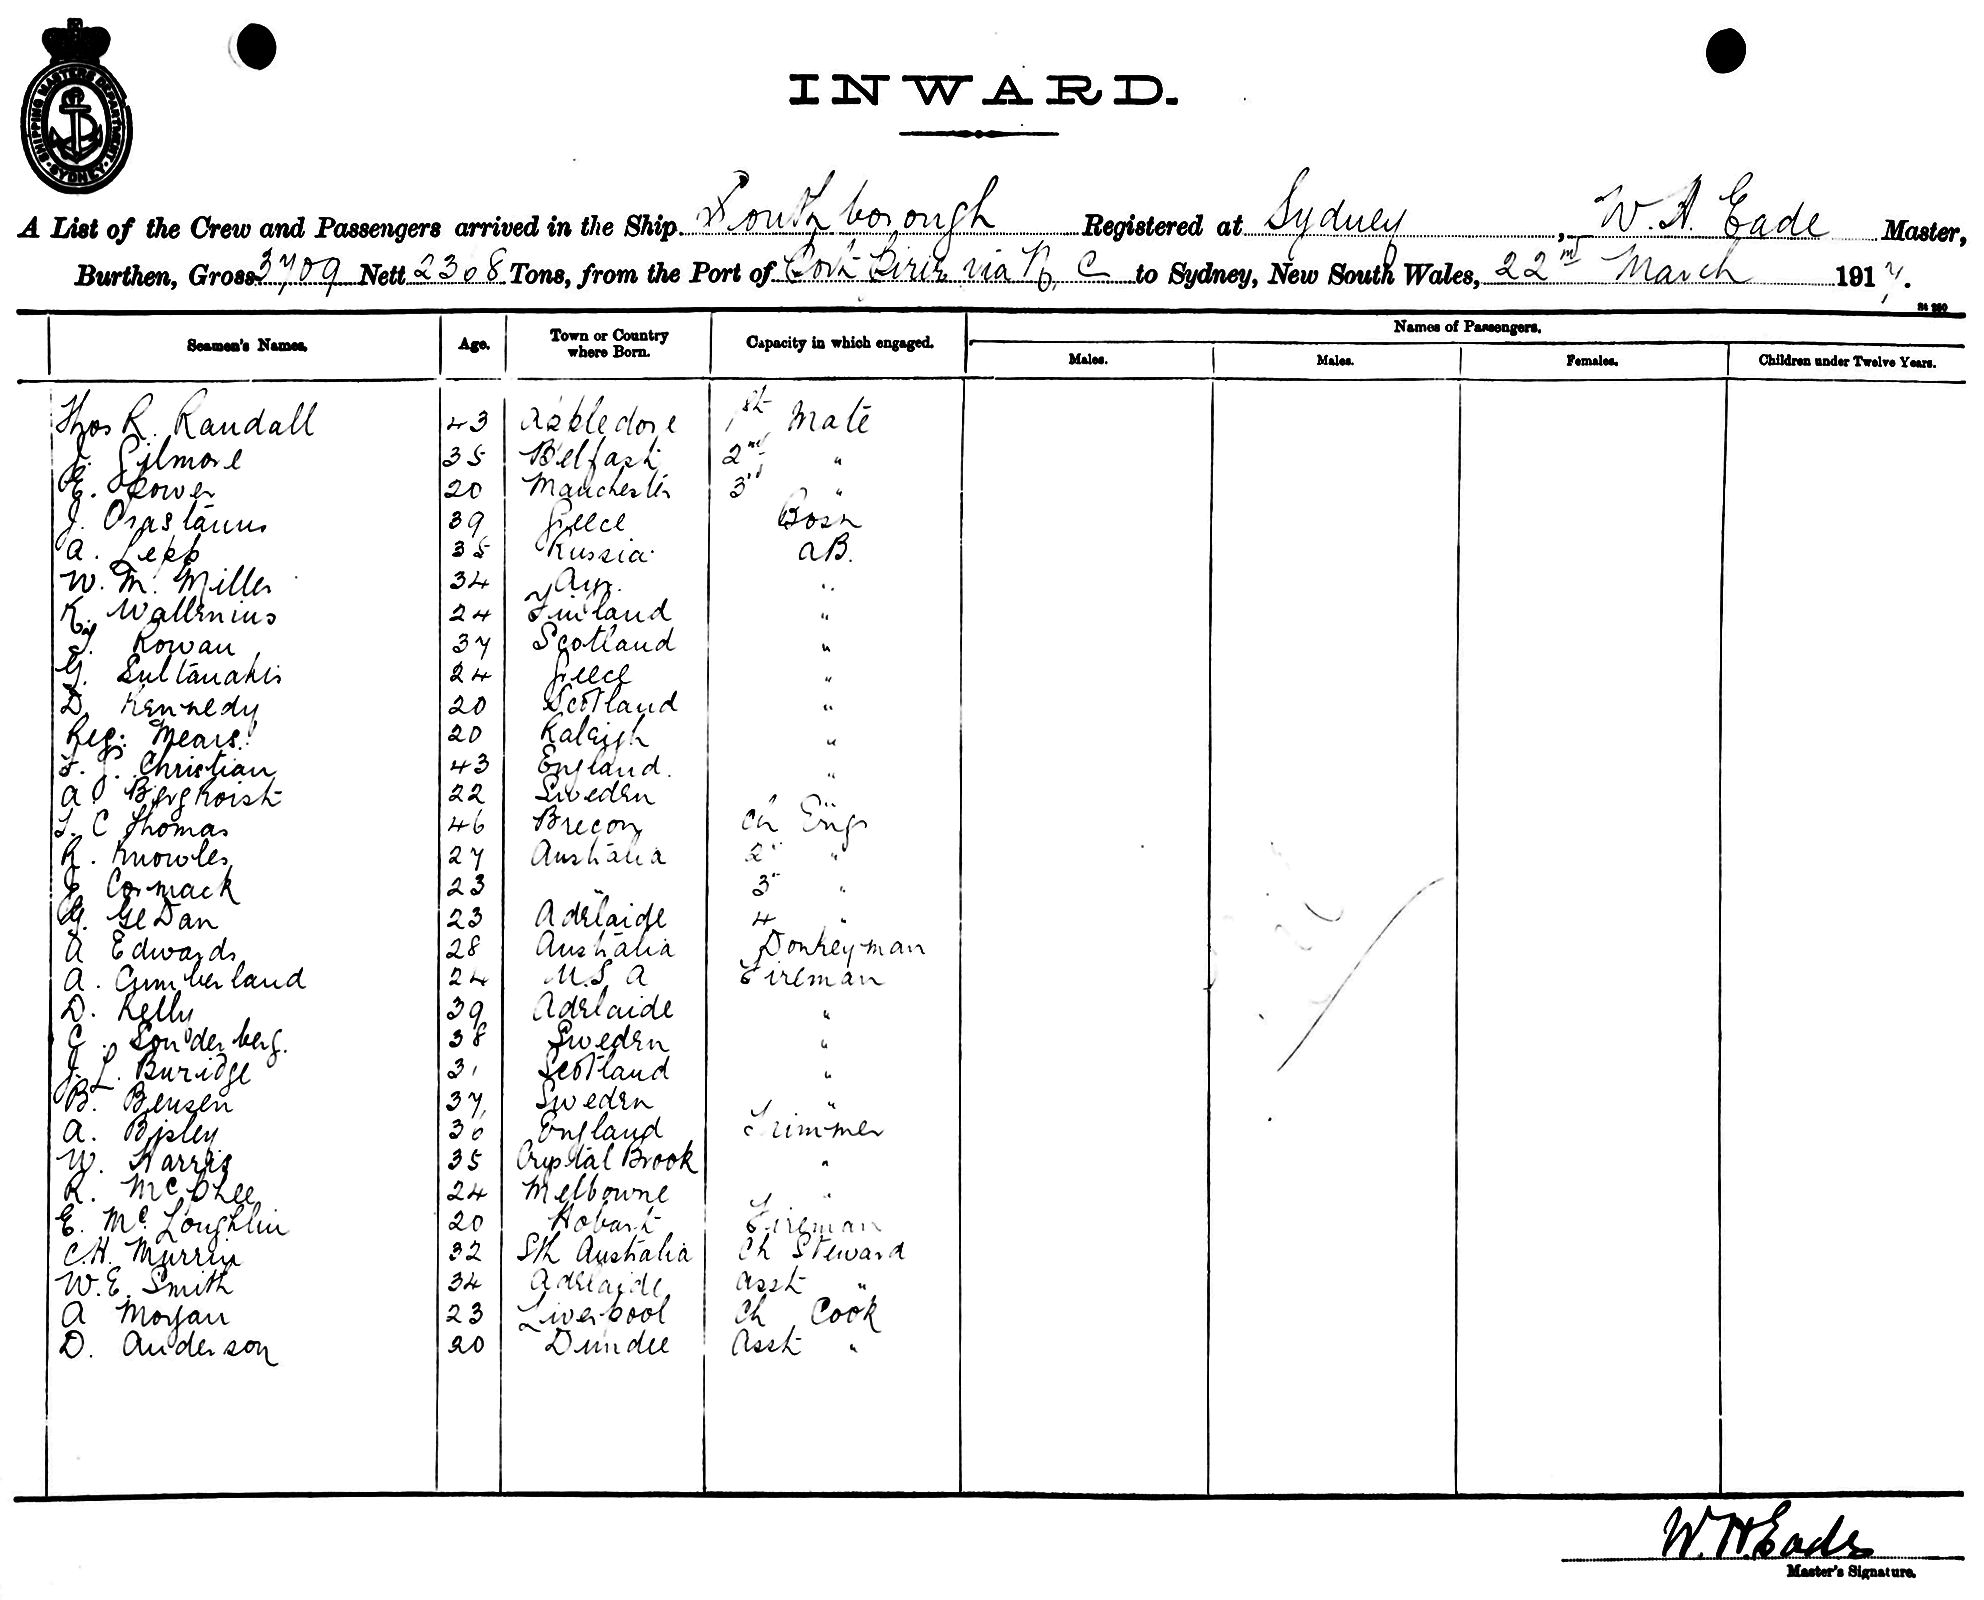 SHIPPING MASTERS DEPARTMENT · SYDNEY ·
INWARD.
A List of the Crew and Passengers arrived in the Ship Southborough Registered at Sydney, W. H. Eade Master,
Burthen, Gross 3709 Nett 2308 Tons, from the Port of Port Pirie via N. C to Sydney, New South Wales, 22nd March 1917.
Names of Passengers.
Seamen's Names. Age. Town or Country where Born. Capacity in which engaged. Males. Males. Females. Children under Twelve Years.
Thos R. Randall 43 Appledore 1st Mate
J. Gilmore 35 Belfast 2nd "
E. Power 20 Manchester 3rd "
J. 39 Greece Bosn
A. Lepp 35 Russia AB.
W. M. Miller 34 Ayr. "
K. Wallenius 24 Finland "
Rowan 37 Scotland "
G. Sultanakis 24 Greece "
D. Kennedy 20 Scotland "
Reg: Mears 20 Raleigh "
Christian 43 England. "
A. 22 Sweden "
C Thomas 46 Brecon Ch Engr
R. Knowles 27 Australia 2" "
J. Cormack 23 " 3" "
G. GeDan 23 Adelaide 4 "
A Edwards 28 Australia Donkeyman
A. Cumberland 24 U.S A Fireman
D. Kelly 39 Adelaide "
C. Sonderberg. 38 Sweden "
J. L. Buridge 31 Scotland "
B. Bensen 37 Sweden "
A. Bisley 30 England Trimmer
W. Harris 35 Crystal Brook "
R. McPhee 24 Melbourne "
E. McLoughlin 20 Hobart Fireman
C.H. Murrin 32 Sth Australia Ch Steward
W.E. Smith 34 Adelaide Asst "
A Morgan 23 Liverpool Ch Cook
D. Anderson 20 Dundee Asst "
W. H. Eade
Master's Signature.